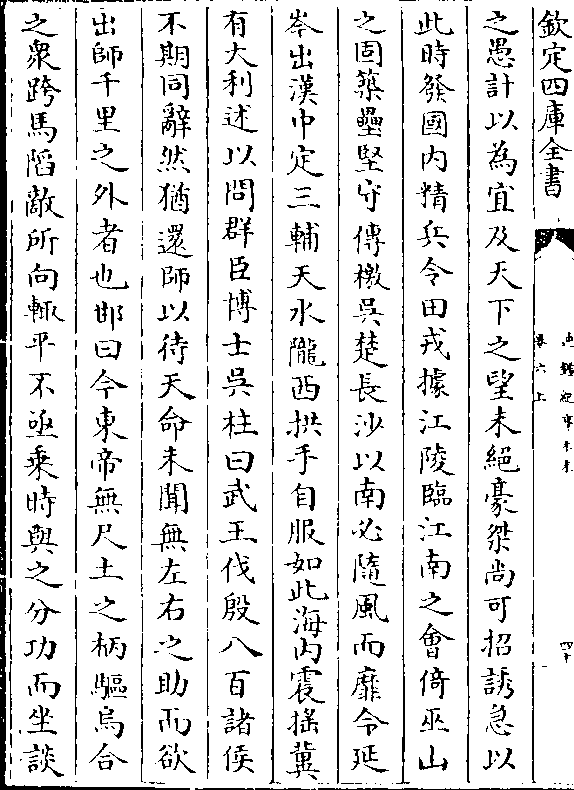 欽定四庫全書
通鑑紀事本末
卷六上
四十
之愚計以為宜及天下之望未絕豪桀尚可招誘急以
此時發國內精兵令田戎據江陵臨江南之會倚巫山
之固築壘堅守傳檄吳楚長沙以南必隨風而靡令延
岑出漢中定三輔天水隴西拱手自服如此海內震搖冀
有大利述以問群臣博士吳柱曰武王伐殷八百諸侯
不期同辭然猶還師以待天命未聞無左右之助而欲
出師千里之外者也邯曰今東帝無尺土之柄驅烏合
之衆跨馬䧟敵所向輙平不亟乗時與之分功而坐談